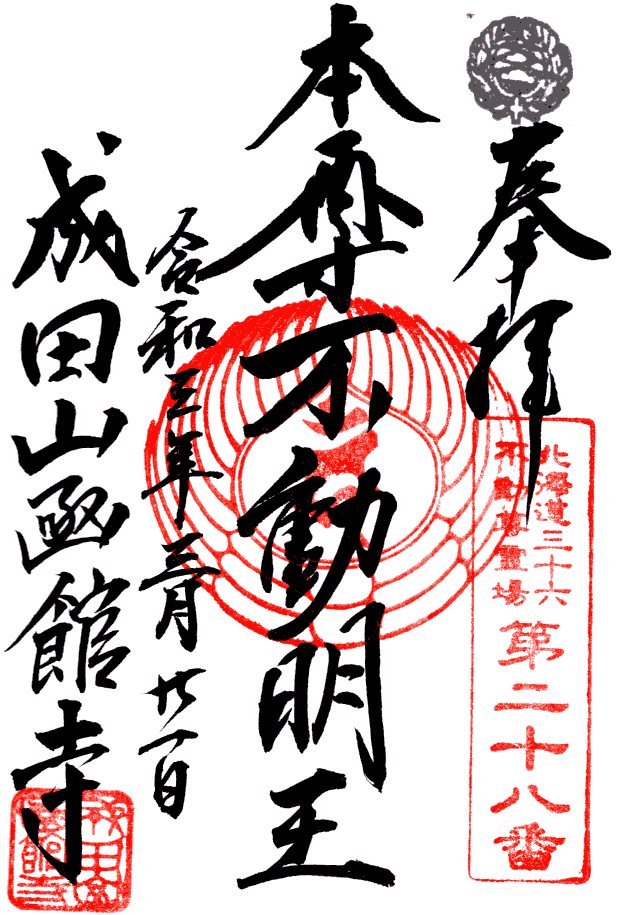 奉拝
北海道三十六
不動尊霊場
第二十八番
本尊不動明王
令和三年三月廿一日
成田山函館寺